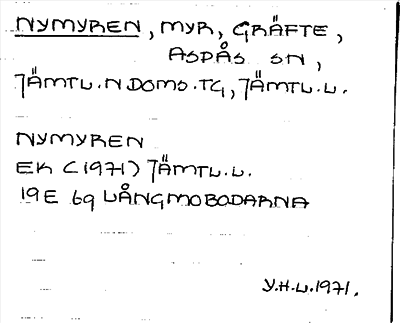 NYMYREN, MYR, GRÄFTE,
ASPÅS SN,
JÄMTL.N DOMS.TG, JÄMTL.L.
NYMYREN
EK (1971) JÄMTL.L.
19E 6g LÅNGMOBODARNA
Y.H-L.1971.